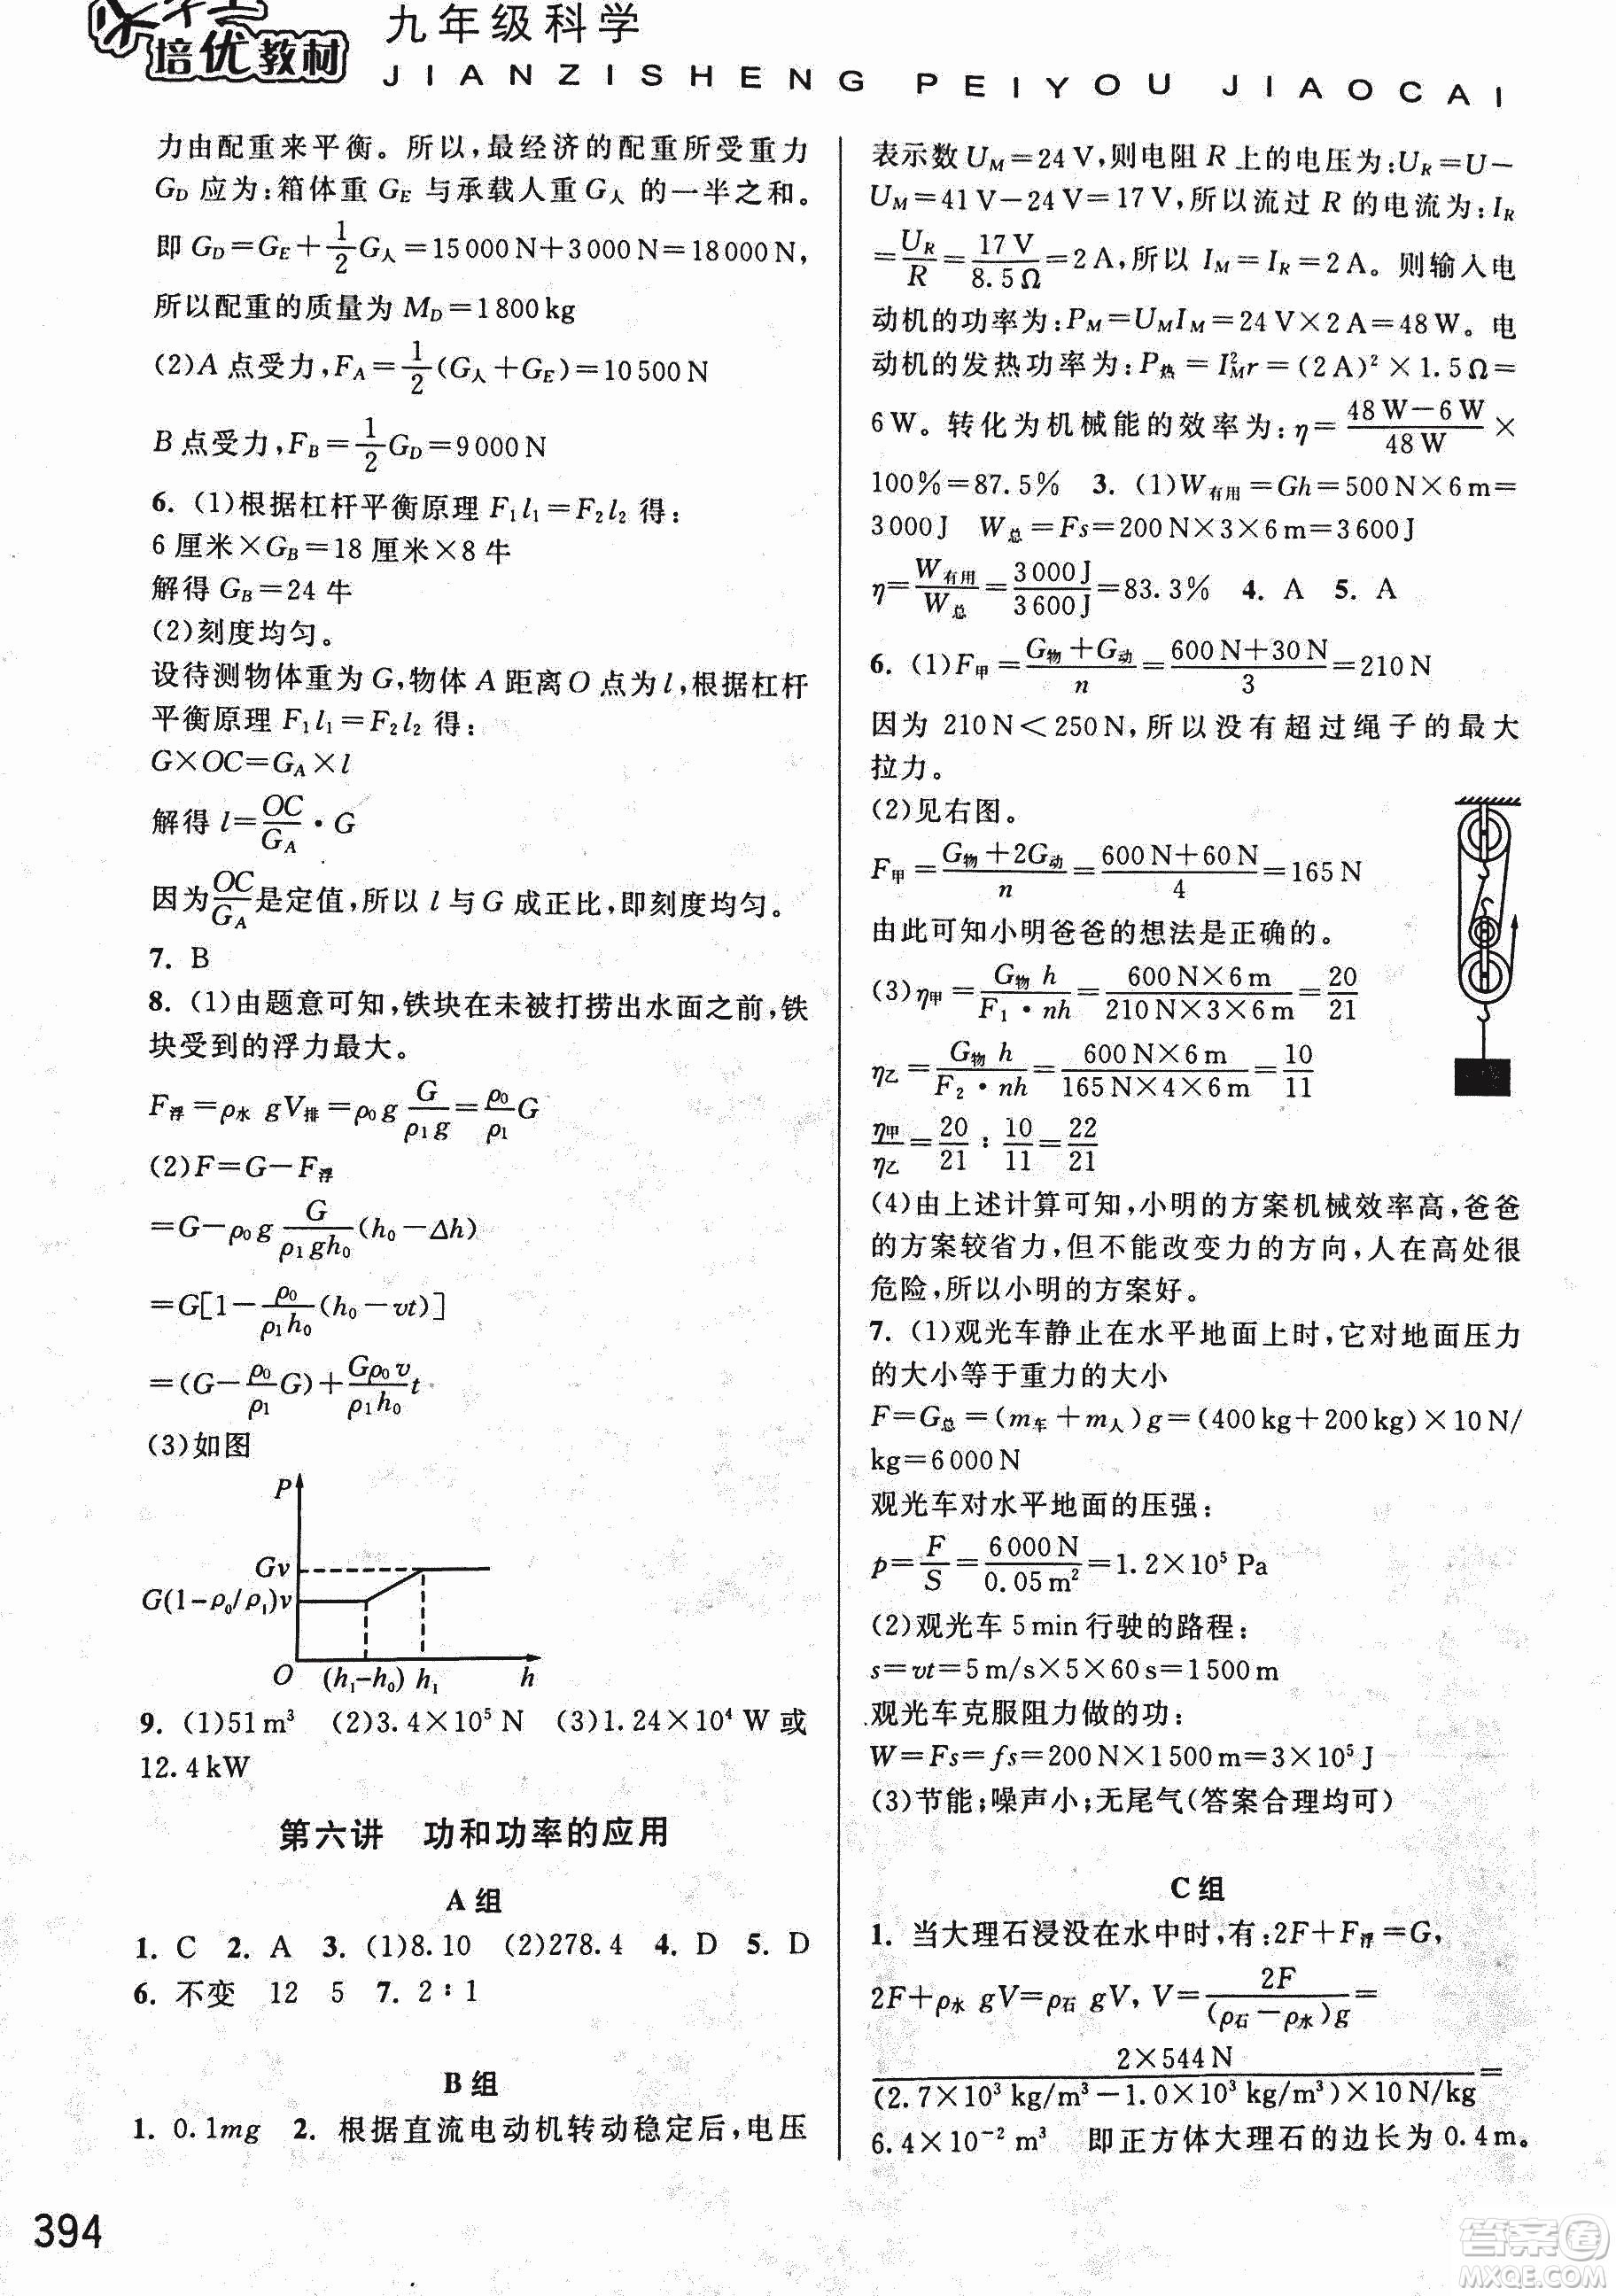 培优教材
九年级科学
JIANZISHENG PEIYOU JIAOCAI
力由配重来平衡。所以,最经济的配重所受重力
G_D应为:箱体重G_E与承载人重G_人的一半之和。
即G_D=G_E+1/2G_人=15000N+3000N=18000N,
所以配重的质量为M_D=1800kg
(2)A点受力,F_A=1/2(G_人+G_E)=10500N
B点受力,F_B=1/2G_D=9000N
6. (1)根据杠杆平衡原理F₁l₁=F₂l₂得:
6厘米×G_B=18厘米×8牛
解得G_B=24牛
(2)刻度均匀。
设待测物体重为G,物体A距离O点为l,根据杠杆
平衡原理F₁l₁=F₂l₂得:
G×OC=G_A×l
解得l=OC/G_A·G
因为OC/G_A是定值,所以l与G成正比,即刻度均匀。
7. B
8. (1)由题意可知,铁块在未被打捞出水面之前,铁
块受到的浮力最大。
F_浮=ρ_水gV_排=ρ₀g G/(ρ₁g)=ρ₀/ρ₁G
(2)F=G-F_浮
=G-ρ₀g G/(ρ₁gh₀)(h₀-Δh)
=G[1-ρ₀/(ρ₁h₀)(h₀-vt)]
=(G-ρ₀/ρ₁G)+Gρ₀v/(ρ₁h₀)t
(3)如图
P
Gv
G(1-ρ₀/ρ₁)v
O (h₁-h₀) h₁ h
9. (1)51m³ (2)3.4×10⁵N (3)1.24×10⁴W或
12.4kW
第六讲 功和功率的应用
A组
1. C 2. A 3. (1)8.10 (2)278.4 4. D 5. D
6. 不变 12 5 7. 2:1
B组
1. 0.1mg 2. 根据直流电动机转动稳定后,电压
394
表示数U_M=24V,则电阻R上的电压为:U_R=U-
U_M=41V-24V=17V,所以流过R的电流为:I_R
=U_R/R=17V/8.5Ω=2A,所以I_M=I_R=2A。则输入电
动机的功率为:P_M=U_MI_M=24V×2A=48W。电
动机的发热功率为:P_热=I²_Mr=(2A)²×1.5Ω=
6W。转化为机械能的效率为:η=(48W-6W)/48W×
100%=87.5% 3. (1)W_有用=Gh=500N×6m=
3000J W_总=Fs=200N×3×6m=3600J
η=W_有用/W_总=3000J/3600J=83.3% 4. A 5. A
6. (1)F_甲=(G_物+G_动)/n=(600N+30N)/3=210N
因为210N<250N,所以没有超过绳子的最大
拉力。
(2)见右图。
F_甲=(G_物+2G_动)/n=(600N+60N)/4=165N
由此可知小明爸爸的想法是正确的。
(3)η_甲=G_物h/(F₁·nh)=600N×6m/(210N×3×6m)=20/21
η_乙=G_物h/(F₂·nh)=600N×6m/(165N×4×6m)=10/11
η_甲/η_乙=20/21:10/11=22/21
(4)由上述计算可知,小明的方案机械效率高,爸爸
的方案较省力,但不能改变力的方向,人在高处很
危险,所以小明的方案好。
7. (1)观光车静止在水平地面上时,它对地面压力
的大小等于重力的大小
F=G_总=(m_车+m_人)g=(400kg+200kg)×10N/
kg=6000N
观光车对水平地面的压强:
p=F/S=6000N/0.05m²=1.2×10⁵Pa
(2)观光车5min行驶的路程:
s=vt=5m/s×5×60s=1500m
观光车克服阻力做的功:
W=Fs=fs=200N×1500m=3×10⁵J
(3)节能;噪声小;无尾气(答案合理均可)
C组
1. 当大理石浸没在水中时,有:2F+F_浮=G,
2F+ρ_水gV=ρ_石gV, V=2F/((ρ_石-ρ_水)g)=
2×544N/((2.7×10³kg/m³-1.0×10³kg/m³)×10N/kg)=
6.4×10⁻²m³ 即正方体大理石的边长为0.4m。
答案圈
MXQE.COM